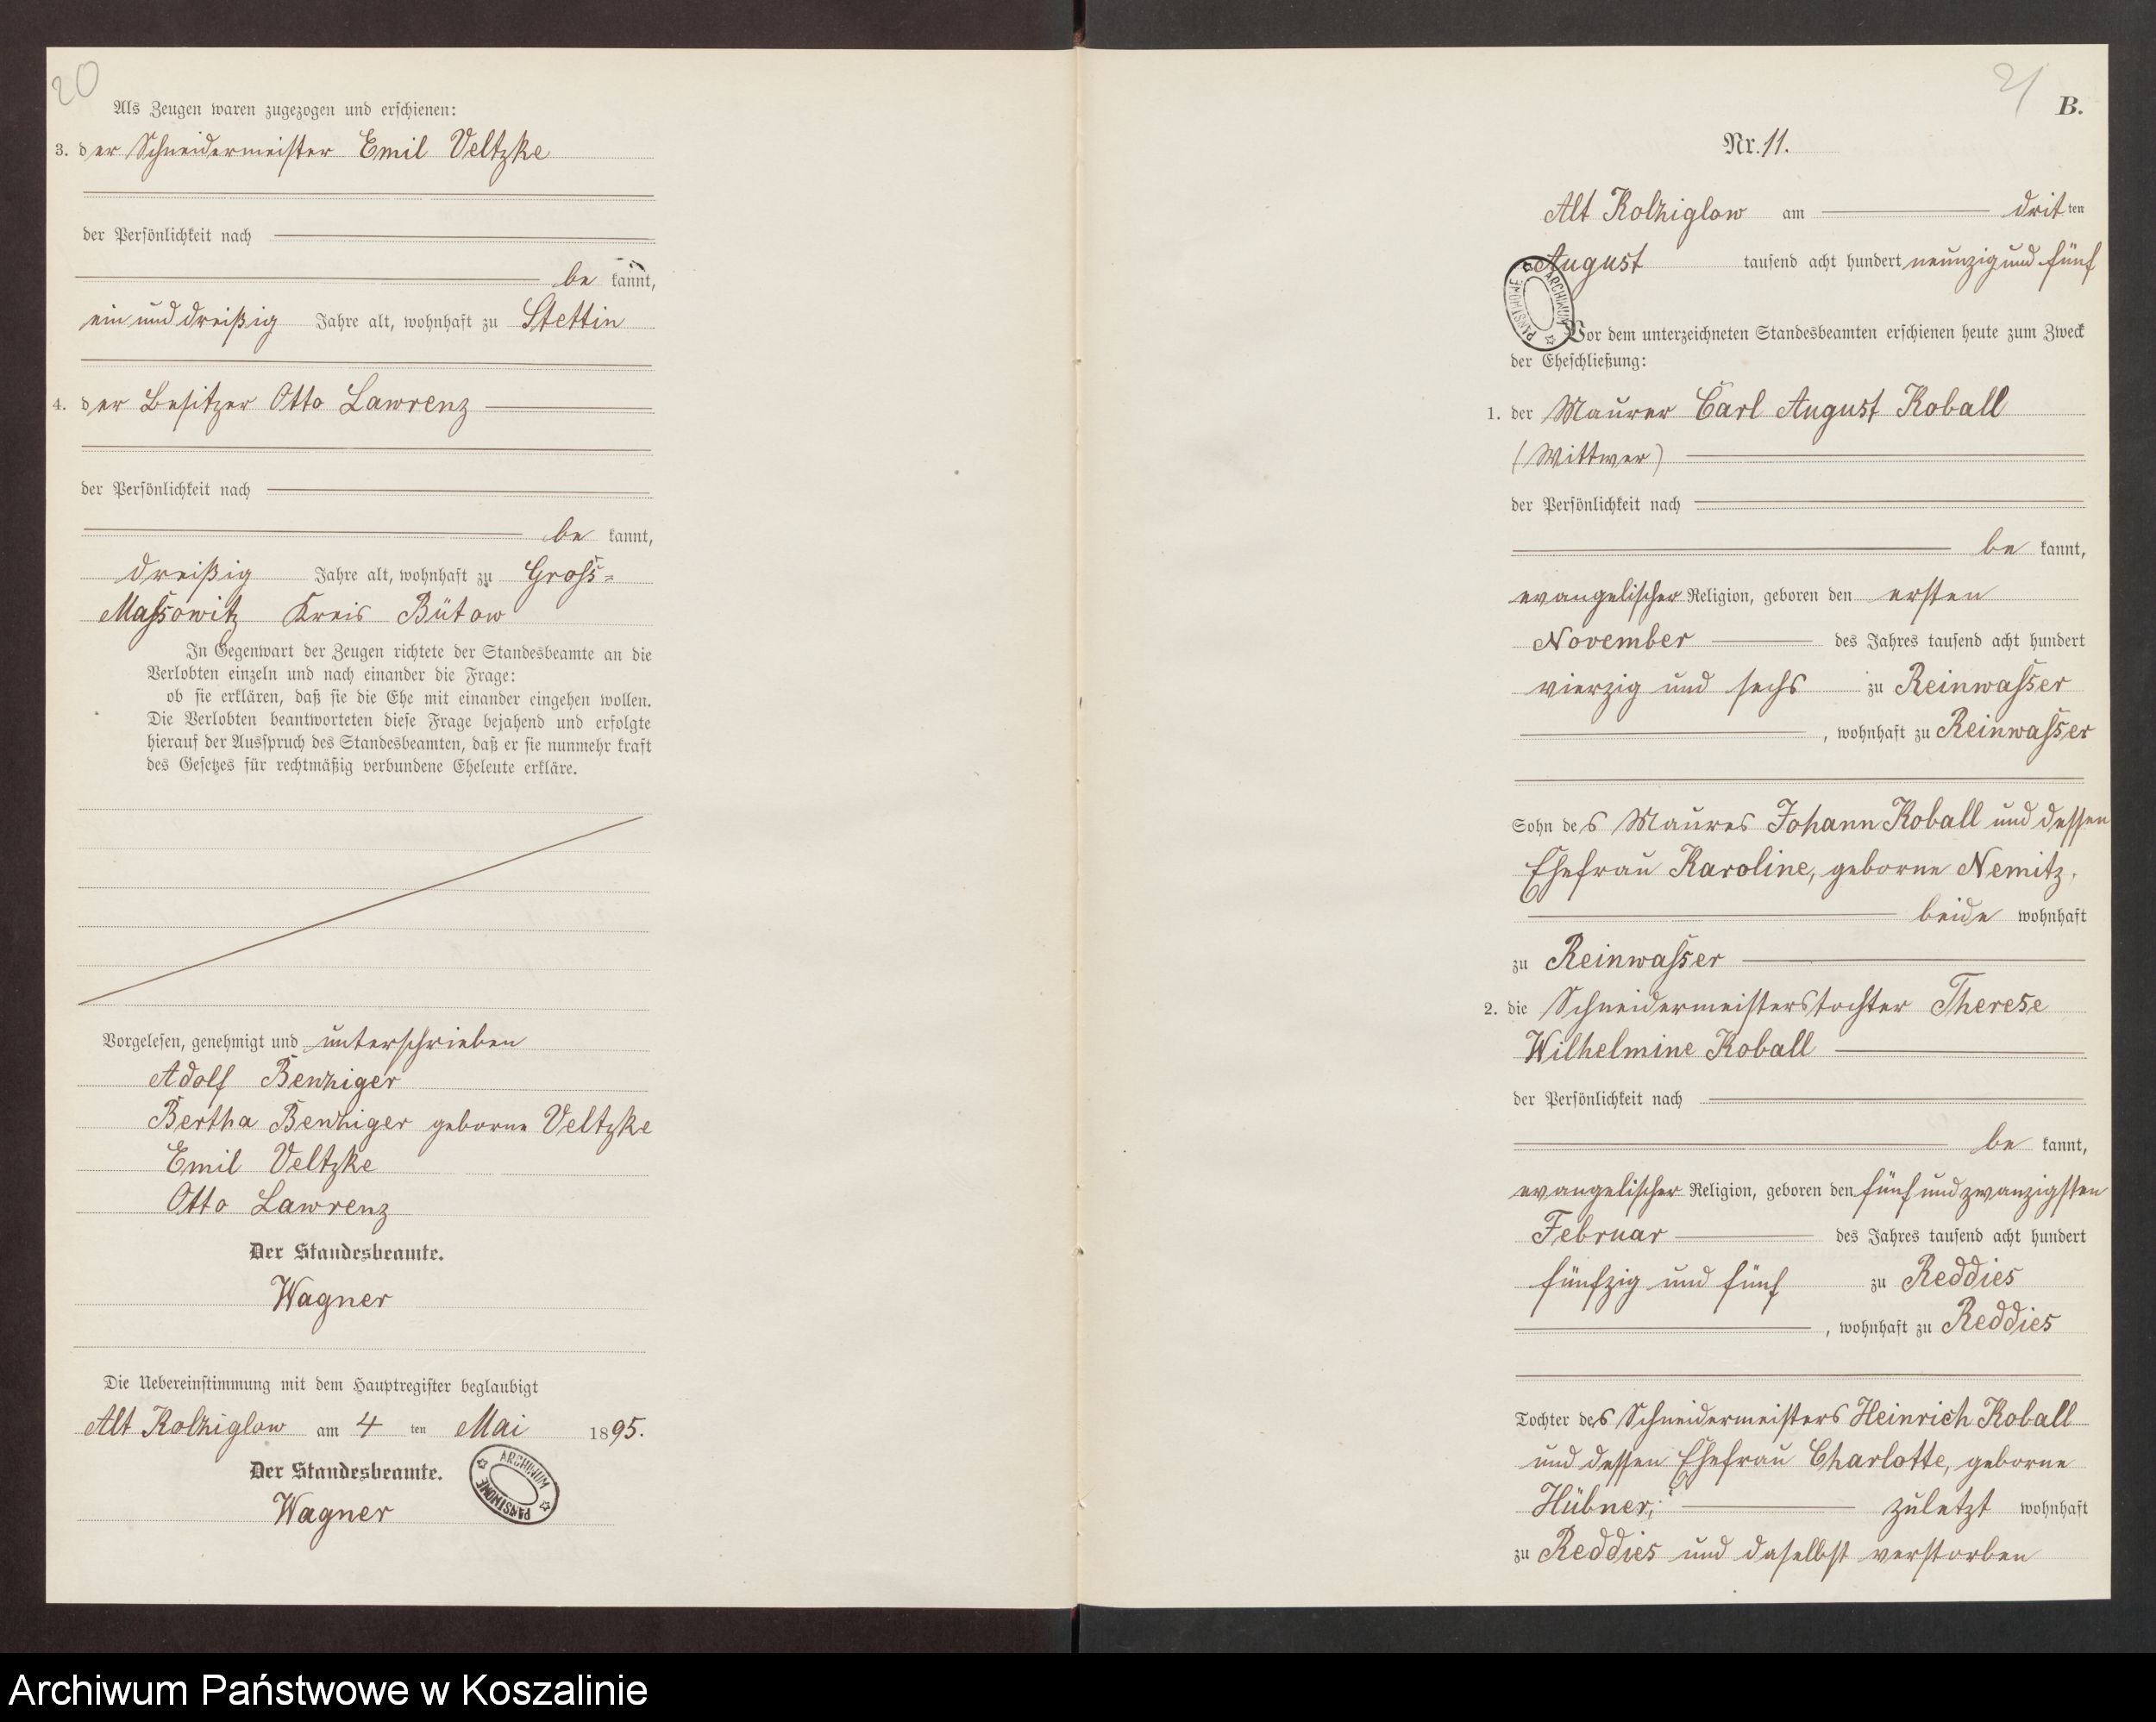 20
Als Zeugen waren zugezogen und erschienen:
3. der Schneidermeister Emil Veltzke
der Persönlichkeit nach
be kannt,
ein und dreißig Jahre alt, wohnhaft zu Stettin
4. der Besitzer Otto Lawrenz
der Persönlichkeit nach
be kannt,
dreißig Jahre alt, wohnhaft zu Gross=
Massowitz Kreis Bütow
In Gegenwart der Zeugen richtete der Standesbeamte an die
Verlobten einzeln und nach einander die Frage:
ob sie erklären, daß sie die Ehe mit einander eingehen wollen.
Die Verlobten beantworteten diese Frage bejahend und erfolgte
hierauf der Ausspruch des Standesbeamten, daß er sie nunmehr kraft
des Gesetzes für rechtmäßig verbundene Eheleute erkläre.
Vorgelesen, genehmigt und unterschrieben
Adolf Benziger
Bertha Benziger geborne Veltzke
Emil Veltzke
Otto Lawrenz
Der Standesbeamte.
Wagner
Die Uebereinstimmung mit dem Hauptregister beglaubigt
Alt Kolziglow am 4 ten Mai 1895.
Der Standesbeamte.
Wagner
ARCHIWUM PAŃSTWOWE
21
B.
Nr. 11.
Alt Kolziglow am dritten
August tausend acht hundert neunzig und fünf
ARCHIWUM PAŃSTWOWE
Vor dem unterzeichneten Standesbeamten erschienen heute zum Zweck
der Eheschließung:
1. der Maurer Carl August Koball
(Wittwer)
der Persönlichkeit nach
be kannt,
evangelischer Religion, geboren den ersten
November des Jahres tausend acht hundert
vierzig und sechs zu Reinwasser
, wohnhaft zu Reinwasser
Sohn des Maures Johann Koball und dessen
Ehefrau Karoline, geborne Nemitz,
beide wohnhaft
zu Reinwasser
2. die Schneidermeisterstochter Therese
Wilhelmine Koball
der Persönlichkeit nach
be kannt,
evangelischer Religion, geboren den fünf und zwanzigsten
Februar des Jahres tausend acht hundert
fünfzig und fünf zu Reddies
, wohnhaft zu Reddies
Tochter des Schneidermeisters Heinrich Koball
und dessen Ehefrau Charlotte, geborne
Hübner, zuletzt wohnhaft
zu Reddies und daselbst verstorben
Archiwum Państwowe w Koszalinie